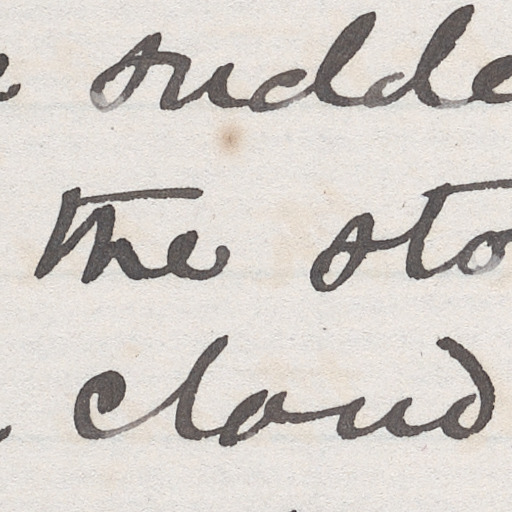 sudde
the sto
cloud